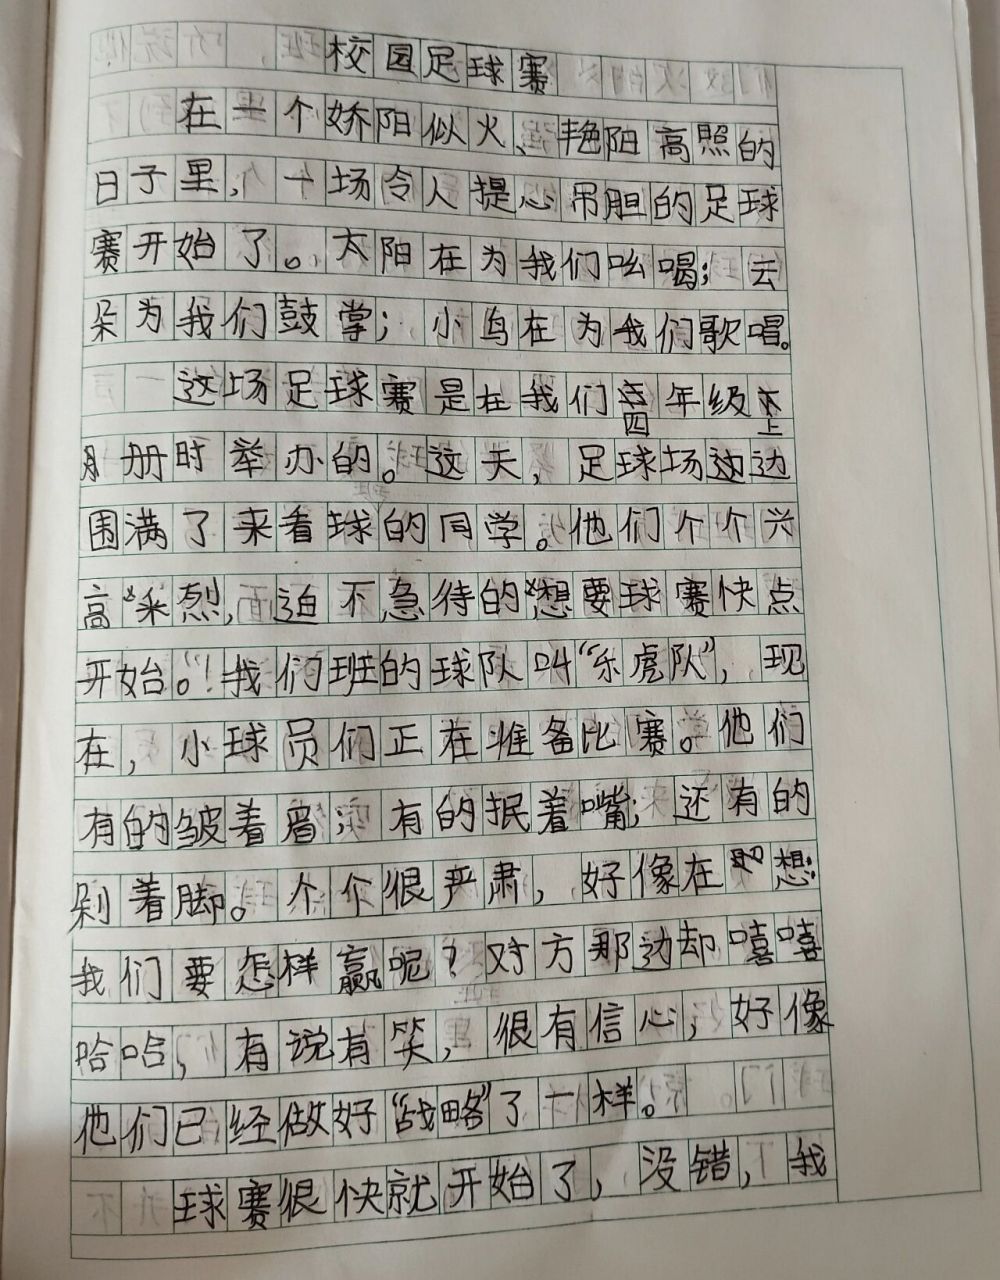 校园足球赛
在一个娇阳似火、艳阳高照的
日子里，一场令人提心吊胆的足球
赛开始了。太阳在为我们吆喝；云
朵为我们鼓掌；小鸟在为我们歌唱。
这场足球赛是在我们四年级上
册时举办的。这天，足球场边边
围满了来看球的同学。他们个个兴
高采烈，迫不急待的想要球赛快点
开始。！我们班的球队叫“乐虎队”，现
在，小球员们正在准备比赛。他们
有的皱着眉；有的抿着嘴；还有的
剁着脚。个个很严肃，好像在想：
我们要怎样赢呢？对方那边却嘻嘻
哈哈，有说有笑，很有信心，好像
他们已经做好“战略”了一样。
球赛很快就开始了，没错，我